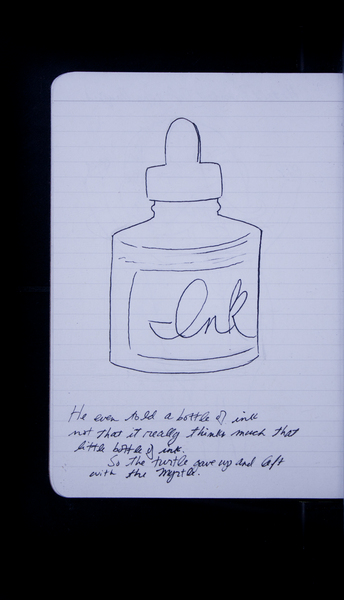 Ink
He even told a bottle of ink
not that it really thinks much that
little bottle of ink.
So the turtle gave up and left
with the Myrtle.